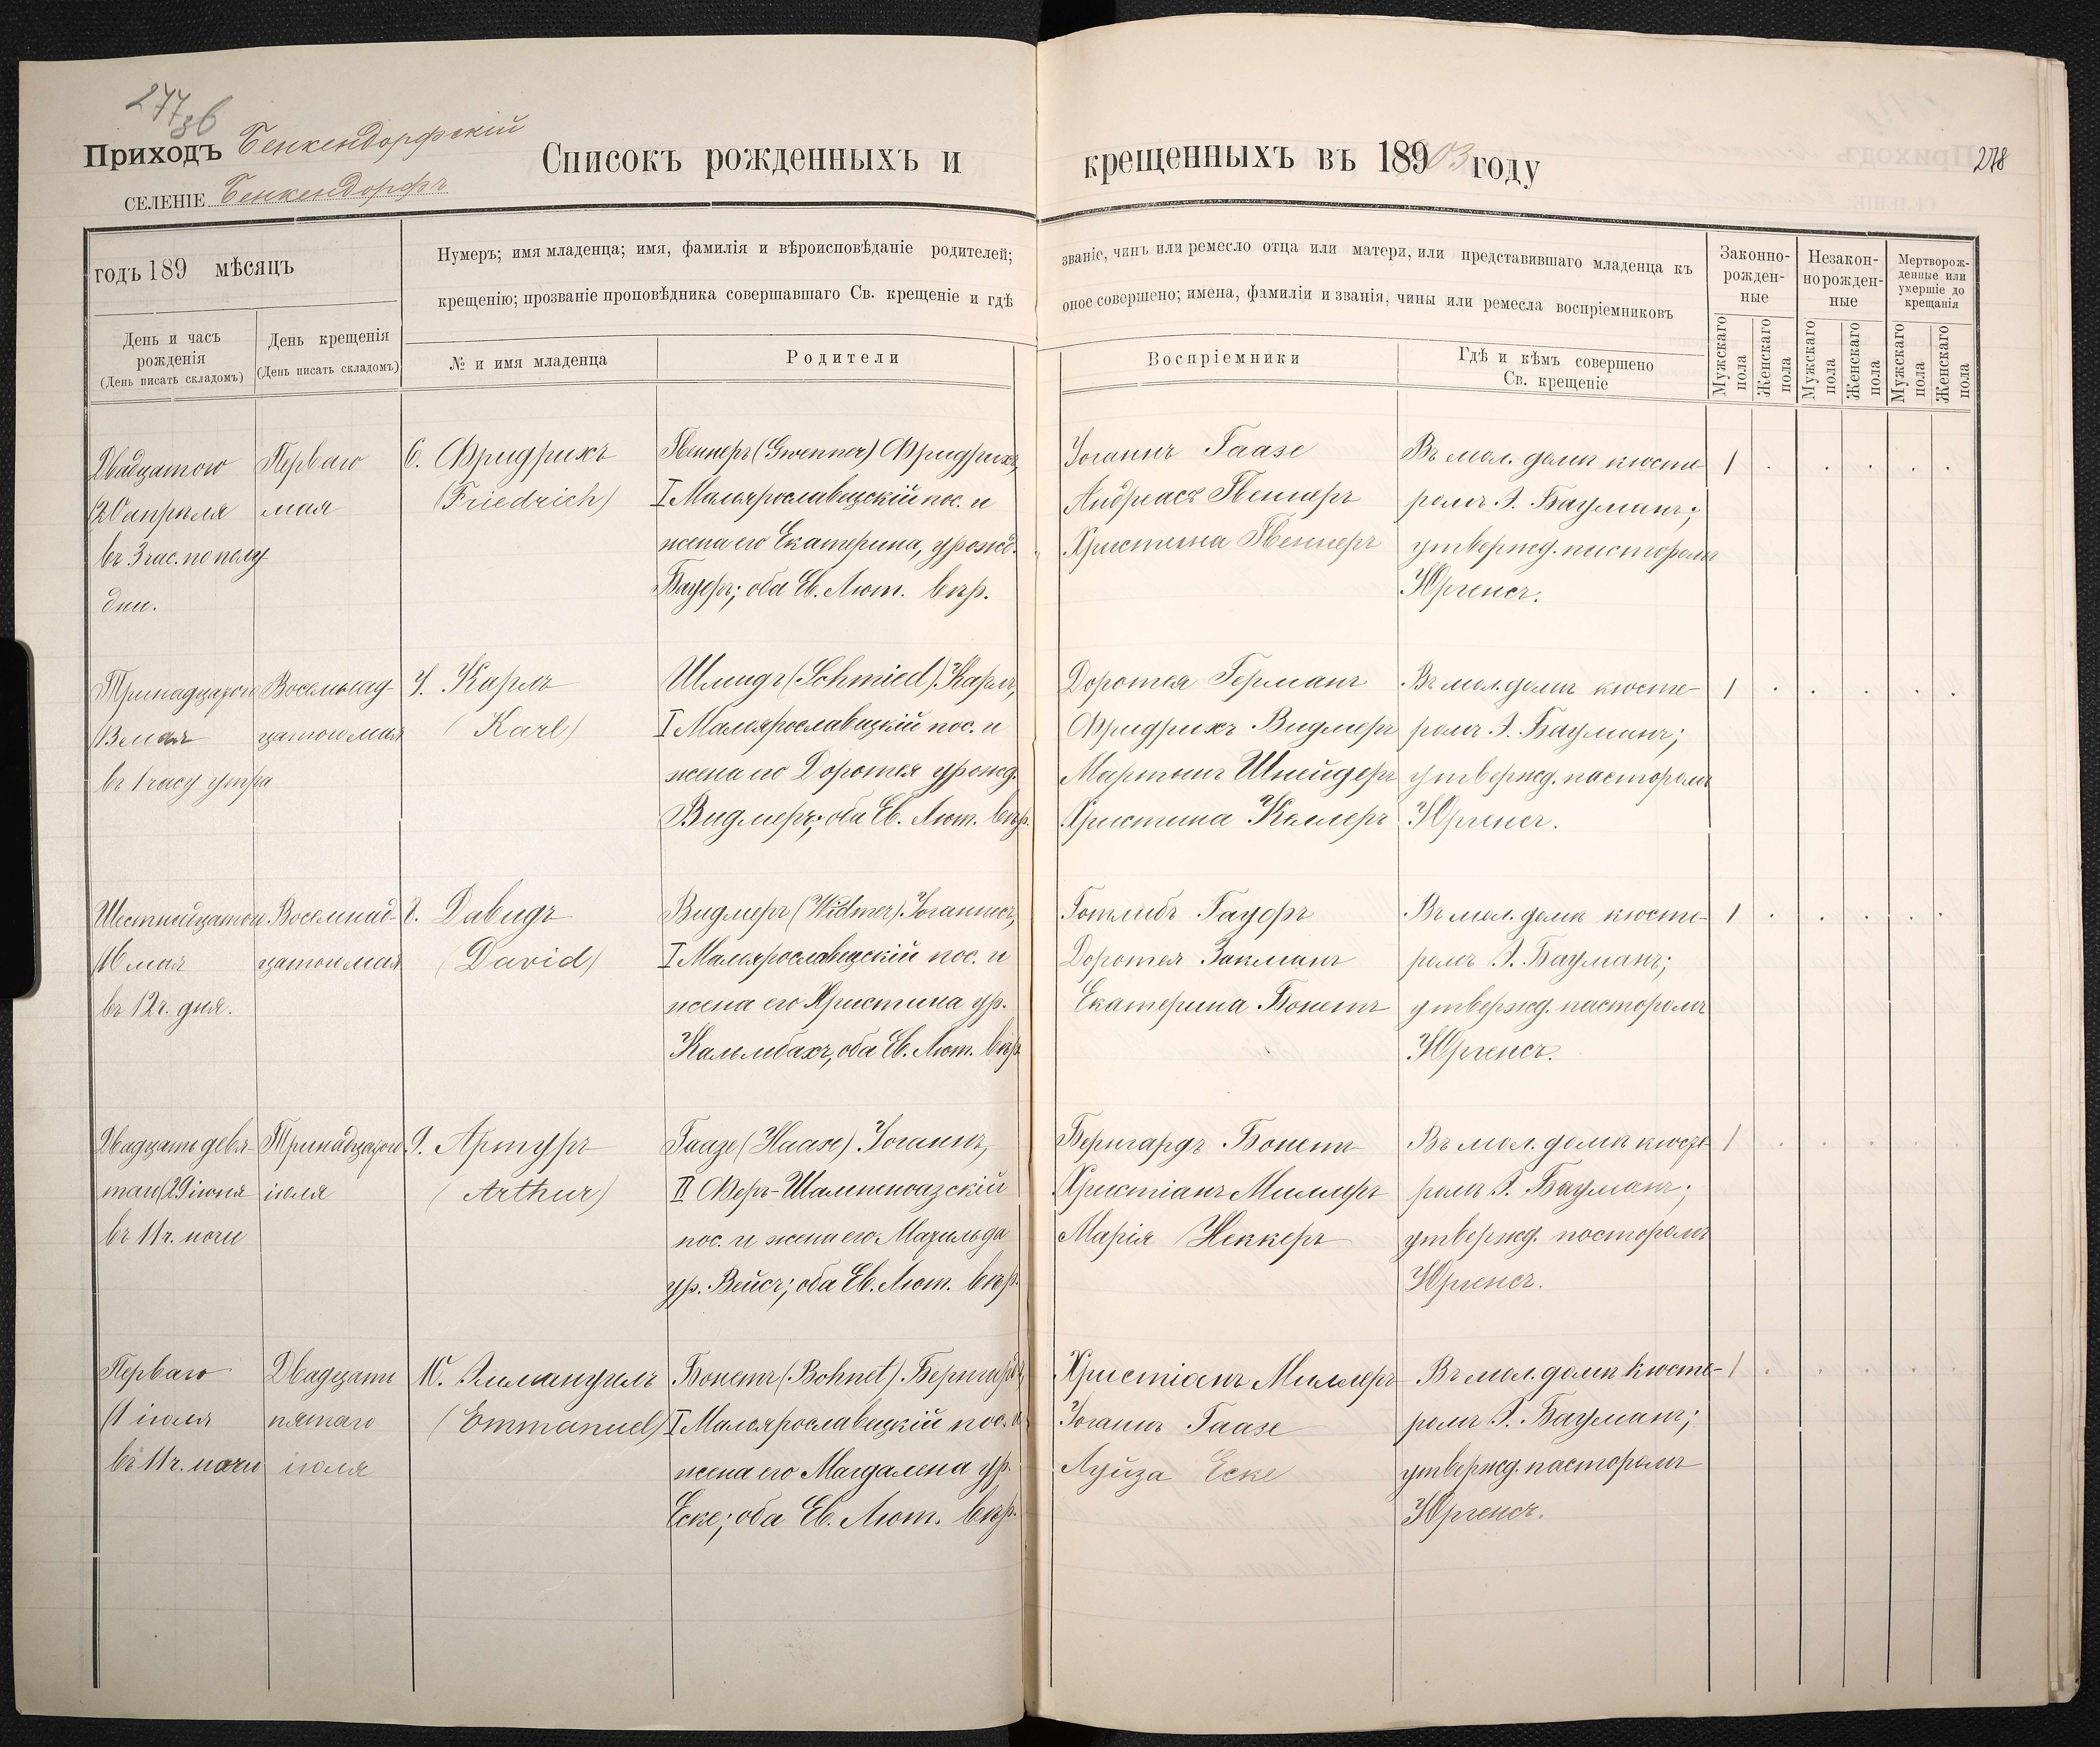 277 зв
Приходъ Бенкендорфскій
селеніе Бенкендорфъ
Списокъ рожденныхъ и крещенныхъ въ 18903 году
278
годъ 189 мѣсяцъ
Нумеръ; имя младенца; имя, фамилія и вѣроисповѣданіе родителей; званіе, чинъ или ремесло отца или матери, или представившаго младенца къ
крещенію; прозваніе проповѣдника совершавшаго Св. крещеніе и гдѣ оное совершено; имена, фамиліи и званія, чины или ремесла воспріемниковъ
Законно-
рожден-
ные
Незакон-
норожден-
ные
Мертворож-
денные или
умершіе до
крещанія
День и часъ
рожденія
(День писать складомъ)
День крещенія
(День писать складомъ)
№ и имя младенца
Родители
Воспріемники
Гдѣ и кѣмъ совершено
Св. крещеніе
Мужскаго
пола
Женскаго
пола
Мужскаго
пола
Женскаго
пола
Мужскаго
пола
Женскаго
пола
Двадцатого
(20 апрѣля
въ 3 час. по полу
дни.
Перваго
мая
6. Фридрихъ
(Friedrich)
Гвеннеръ (Gwenner) Фридрихъ,
I Малоярославецскій пос. и
жена его Екатерина, урожд.
Бауеръ; оба Ев. Лют. вѣр.
Іоганнъ Гаазе
Андреасъ Гвеннеръ
Христина Гвеннеръ
Въ мол. домѣ кюсте-
ромъ Э. Бауманъ;
утвержд. пасторомъ
Юргенсъ.
1
Тринадцатого
(13 мая
въ 1 часу утра
Восемнад-
цатого мая
7. Карлъ
(Karl)
Шмидъ (Schmied) Карлъ,
I Малоярославецкій пос. и
жена его Доротея урожд.
Видмеръ; оба Ев. Лют. вѣр.
Доротея Германъ
Фридрихъ Видмеръ
Мартинъ Шнейдеръ
Христина Келлеръ
Въ мол. домѣ кюсте-
ромъ Э. Бауманъ;
утвержд. пасторомъ
Юргенсъ.
1
Шестнадцатого
(16 мая
въ 12 ч. дня.
Восемнад-
цатого мая
8. Давидъ
(David)
Видмеръ (Widmer) Іоганнесъ,
I Малоярославецскій пос. и
жена его Христина ур.
Кальмбахъ, оба Ев. Лют. вѣр.
Готлибъ Гауфъ
Доротея Закманъ
Екатерина Бонетъ
Въ мол. домѣ кюсте-
ромъ Э. Бауманъ;
утвержд. пасторомъ
Юргенсъ.
1
Двадцать девя-
таго (29 іюня
въ 11 ч. ночи
Тринадцатого
іюля
9. Артуръ
(Arthur)
Гаазе (Haase) Іоганнъ,
II Феръ-Шампенуазскій
пос. и жена его Матильда
ур. Вейсъ; оба Ев. Лют. вѣр.
Бернгардъ Бонетъ
Христіанъ Миллеръ
Марія Неккеръ
Въ мол. домѣ кюсте-
ромъ Э. Бауманъ;
утвержд. пасторомъ
Юргенсъ.
1
Перваго
(1 іюля
въ 11 ч. ночи
Двадцать
пятаго
іюля
10. Эммануелъ
(Emmanuel)
Бонетъ (Bohnet) Бернгардъ
I Малоярославецкій пос. и
жена его Магдалена ур.
Еске; оба Ев. Лют. вѣр.
Христіанъ Миллеръ
Іоганнъ Гаазе
Луйза Еске
Въ мол. домѣ кюсте-
ромъ Э. Бауманъ;
утвержд. пасторомъ
Юргенсъ.
1